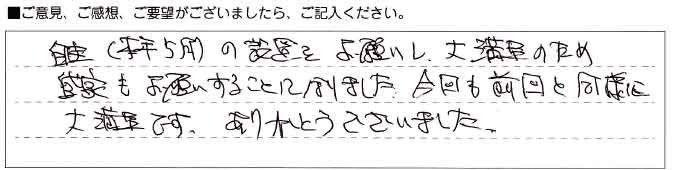 ■ご意見、ご感想、ご要望がございましたら、ご記入ください。
自宅(本年5月)の設置をお願いし、大満足のため
もお願いすることになりました。今回も前回と同様に
大満足です。ありがとうございました。